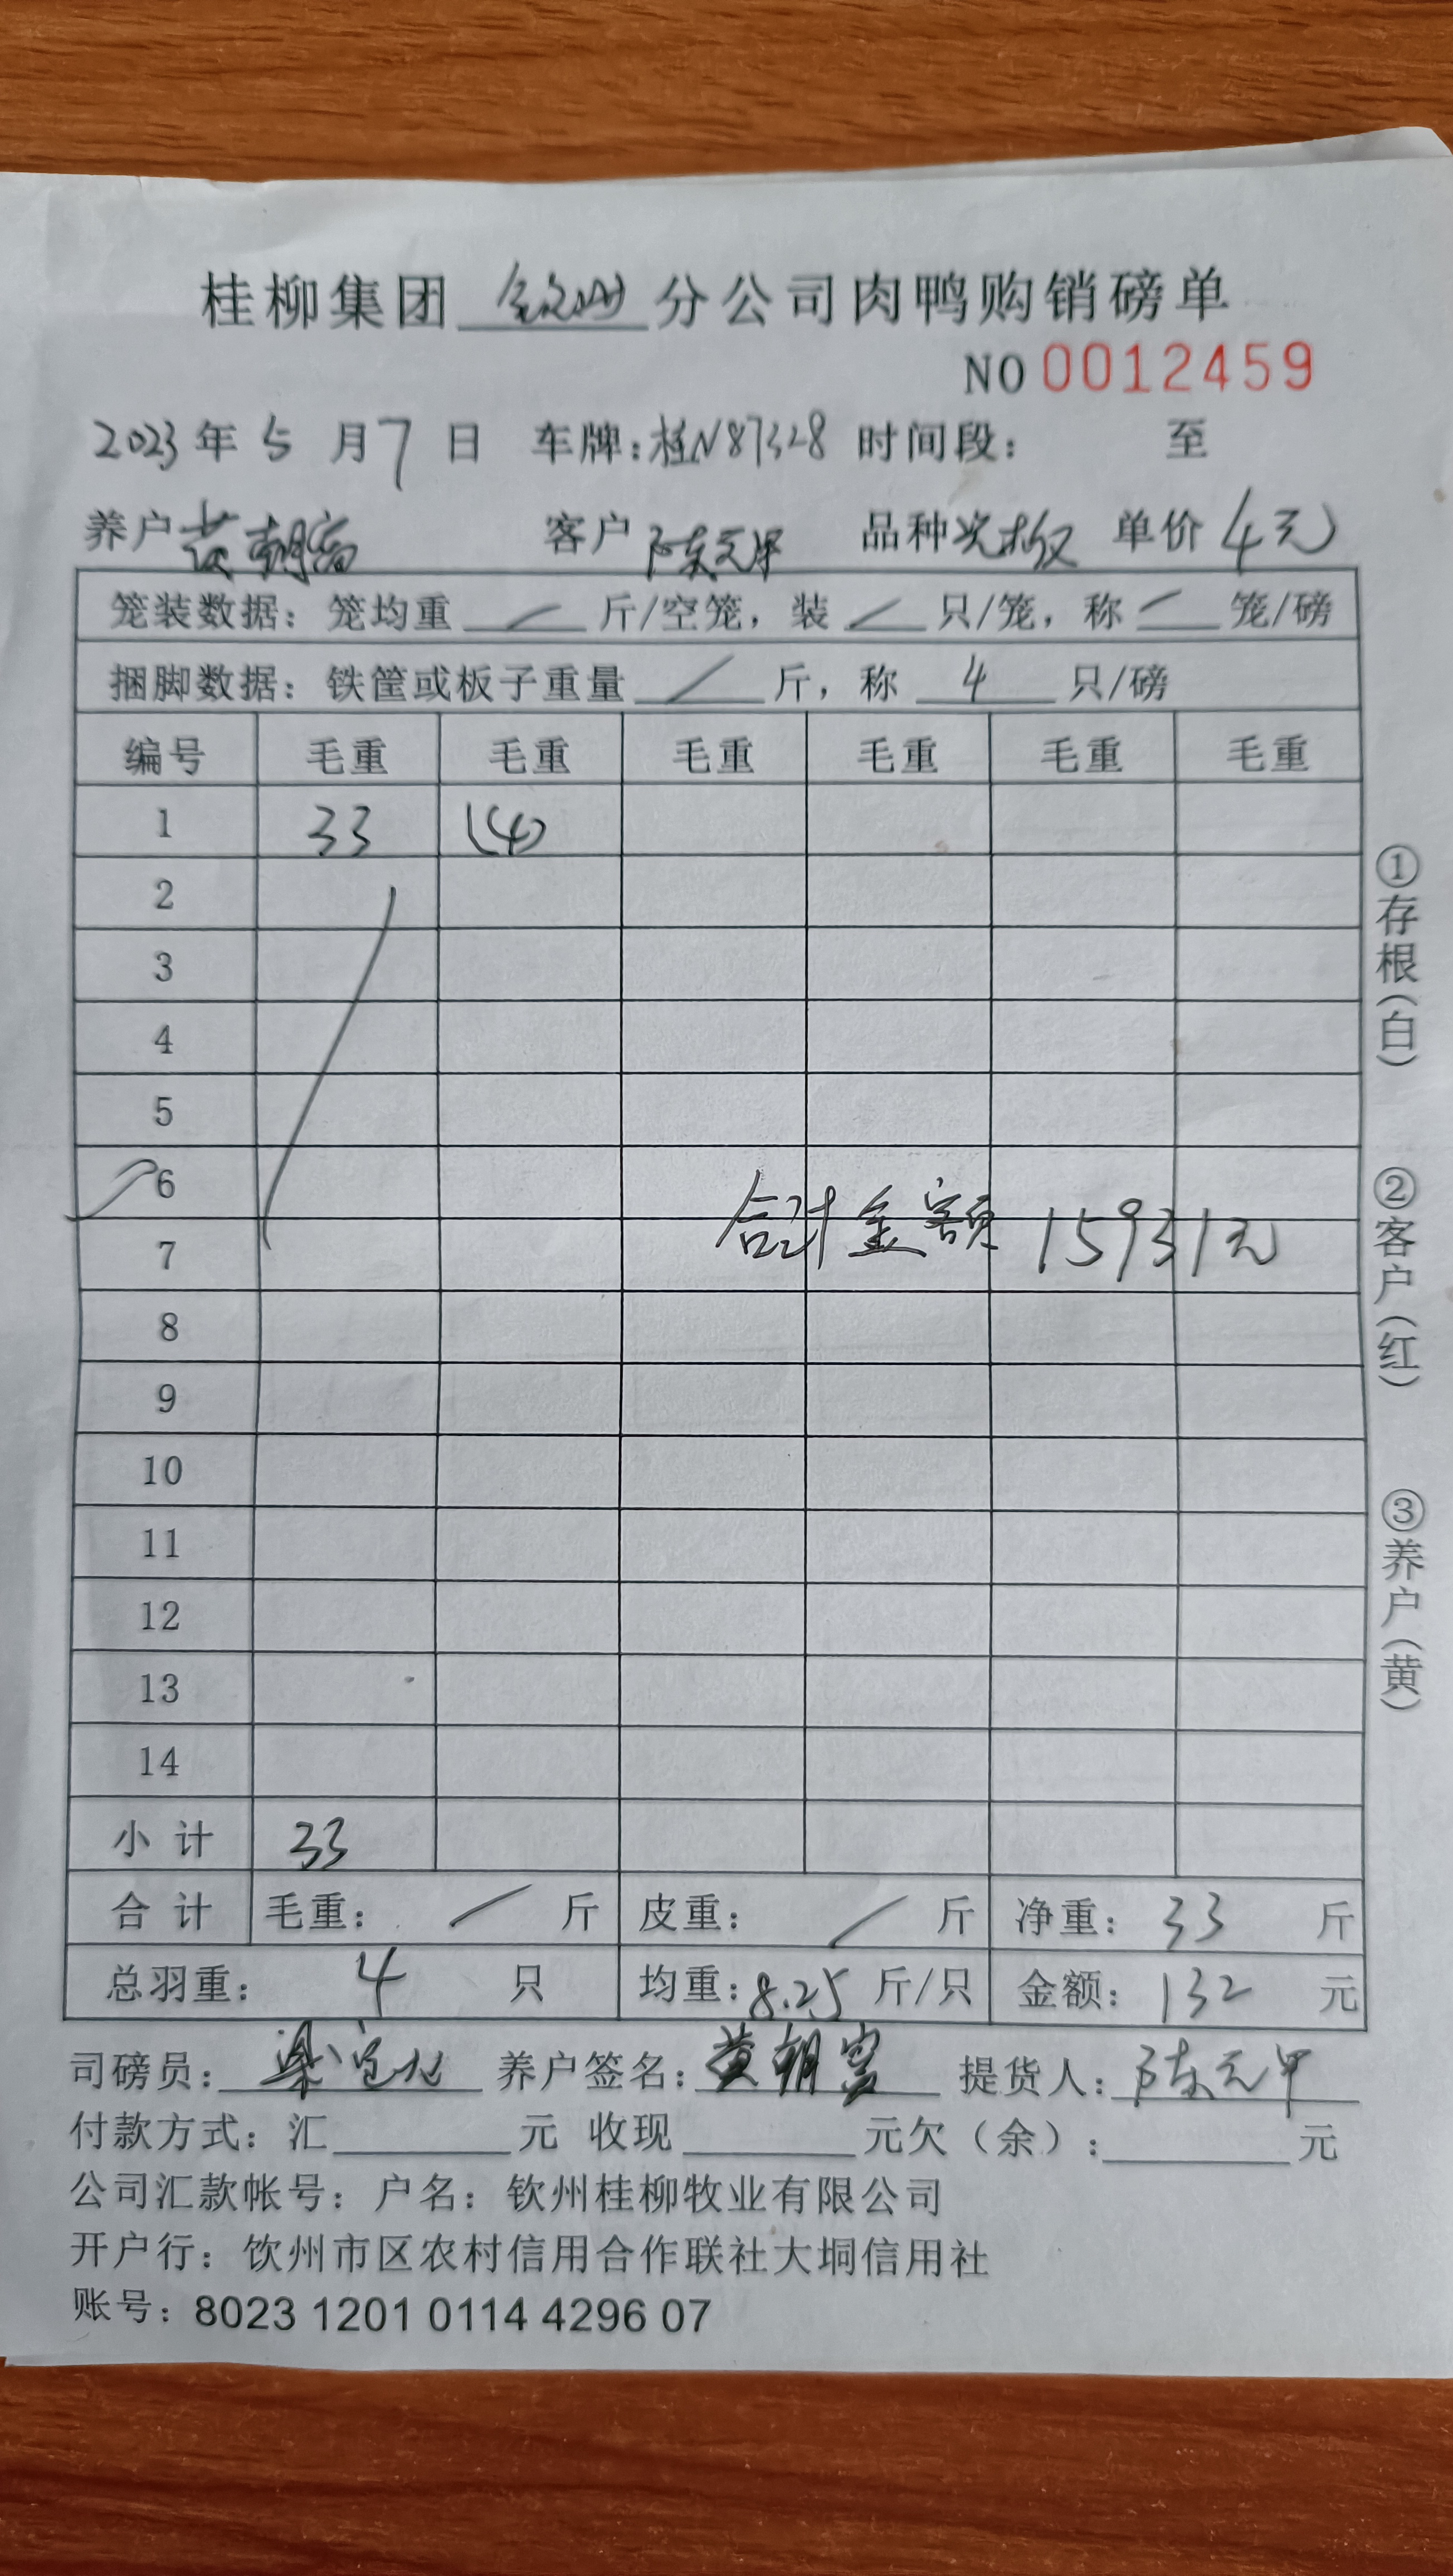 桂柳集团 钦州 分公司肉鸭购销磅单
NO 0012459
2023 年 5 月 7 日 车牌:桂N87328 时间段: 至
养户 黄朝富 客户 陈元甲 品种 单价 4元
笼装数据: 笼均重 / 斤/空笼, 装 / 只/笼, 称 / 笼/磅
捆脚数据: 铁筐或板子重量 / 斤, 称 4 只/磅
编号 毛重 毛重 毛重 毛重 毛重 毛重
1 33 (4)
2
3
4
5
6
合计金额 15931元
7
8
9
10
11
12
13
14
小计 33
合计 毛重: / 斤 皮重: / 斤 净重: 33 斤
总羽重: 4 只 均重: 8.25 斤/只 金额: 132 元
司磅员: 养户签名: 黄朝富 提货人: 陈元甲
付款方式: 汇 元 收现 元欠(余): 元
公司汇款帐号: 户名: 钦州桂柳牧业有限公司
开户行: 饮州市区农村信用合作联社大垌信用社
账号: 8023 1201 0114 4296 07
①存根(白)
②客户(红)
③养户(黄)